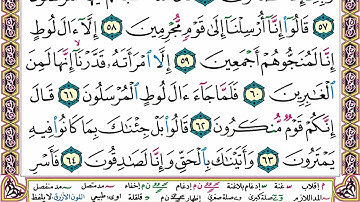 ٥٧ قَالُوٓا۟ إِنَّآ أُرْسِلْنَآ إِلَىٰ قَوْمٍ مُّجْرِمِينَ ٥٨ إِلَّآ ءَالَ لُوطٍ
إِنَّا لَمُنَجُّوهُمْ أَجْمَعِينَ ٥٩ إِلَّا ٱمْرَأَتَهُۥ قَدَّرْنَآ إِنَّهَا لَمِنَ
ٱلْغَٰبِرِينَ ٦٠ فَلَمَّا جَآءَ ءَالَ لُوطٍ ٱلْمُرْسَلُونَ ٦١ قَالَ
إِنَّكُمْ قَوْمٌ مُّنكَرُونَ ٦٢ قَالُوا۟ بَلْ جِئْنَٰكَ بِمَا كَانُوا۟ فِيهِ
يَمْتَرُونَ ٦٣ وَأَتَيْنَٰكَ بِٱلْحَقِّ وَإِنَّا لَصَٰدِقُونَ ٦٤ فَأَسْرِ